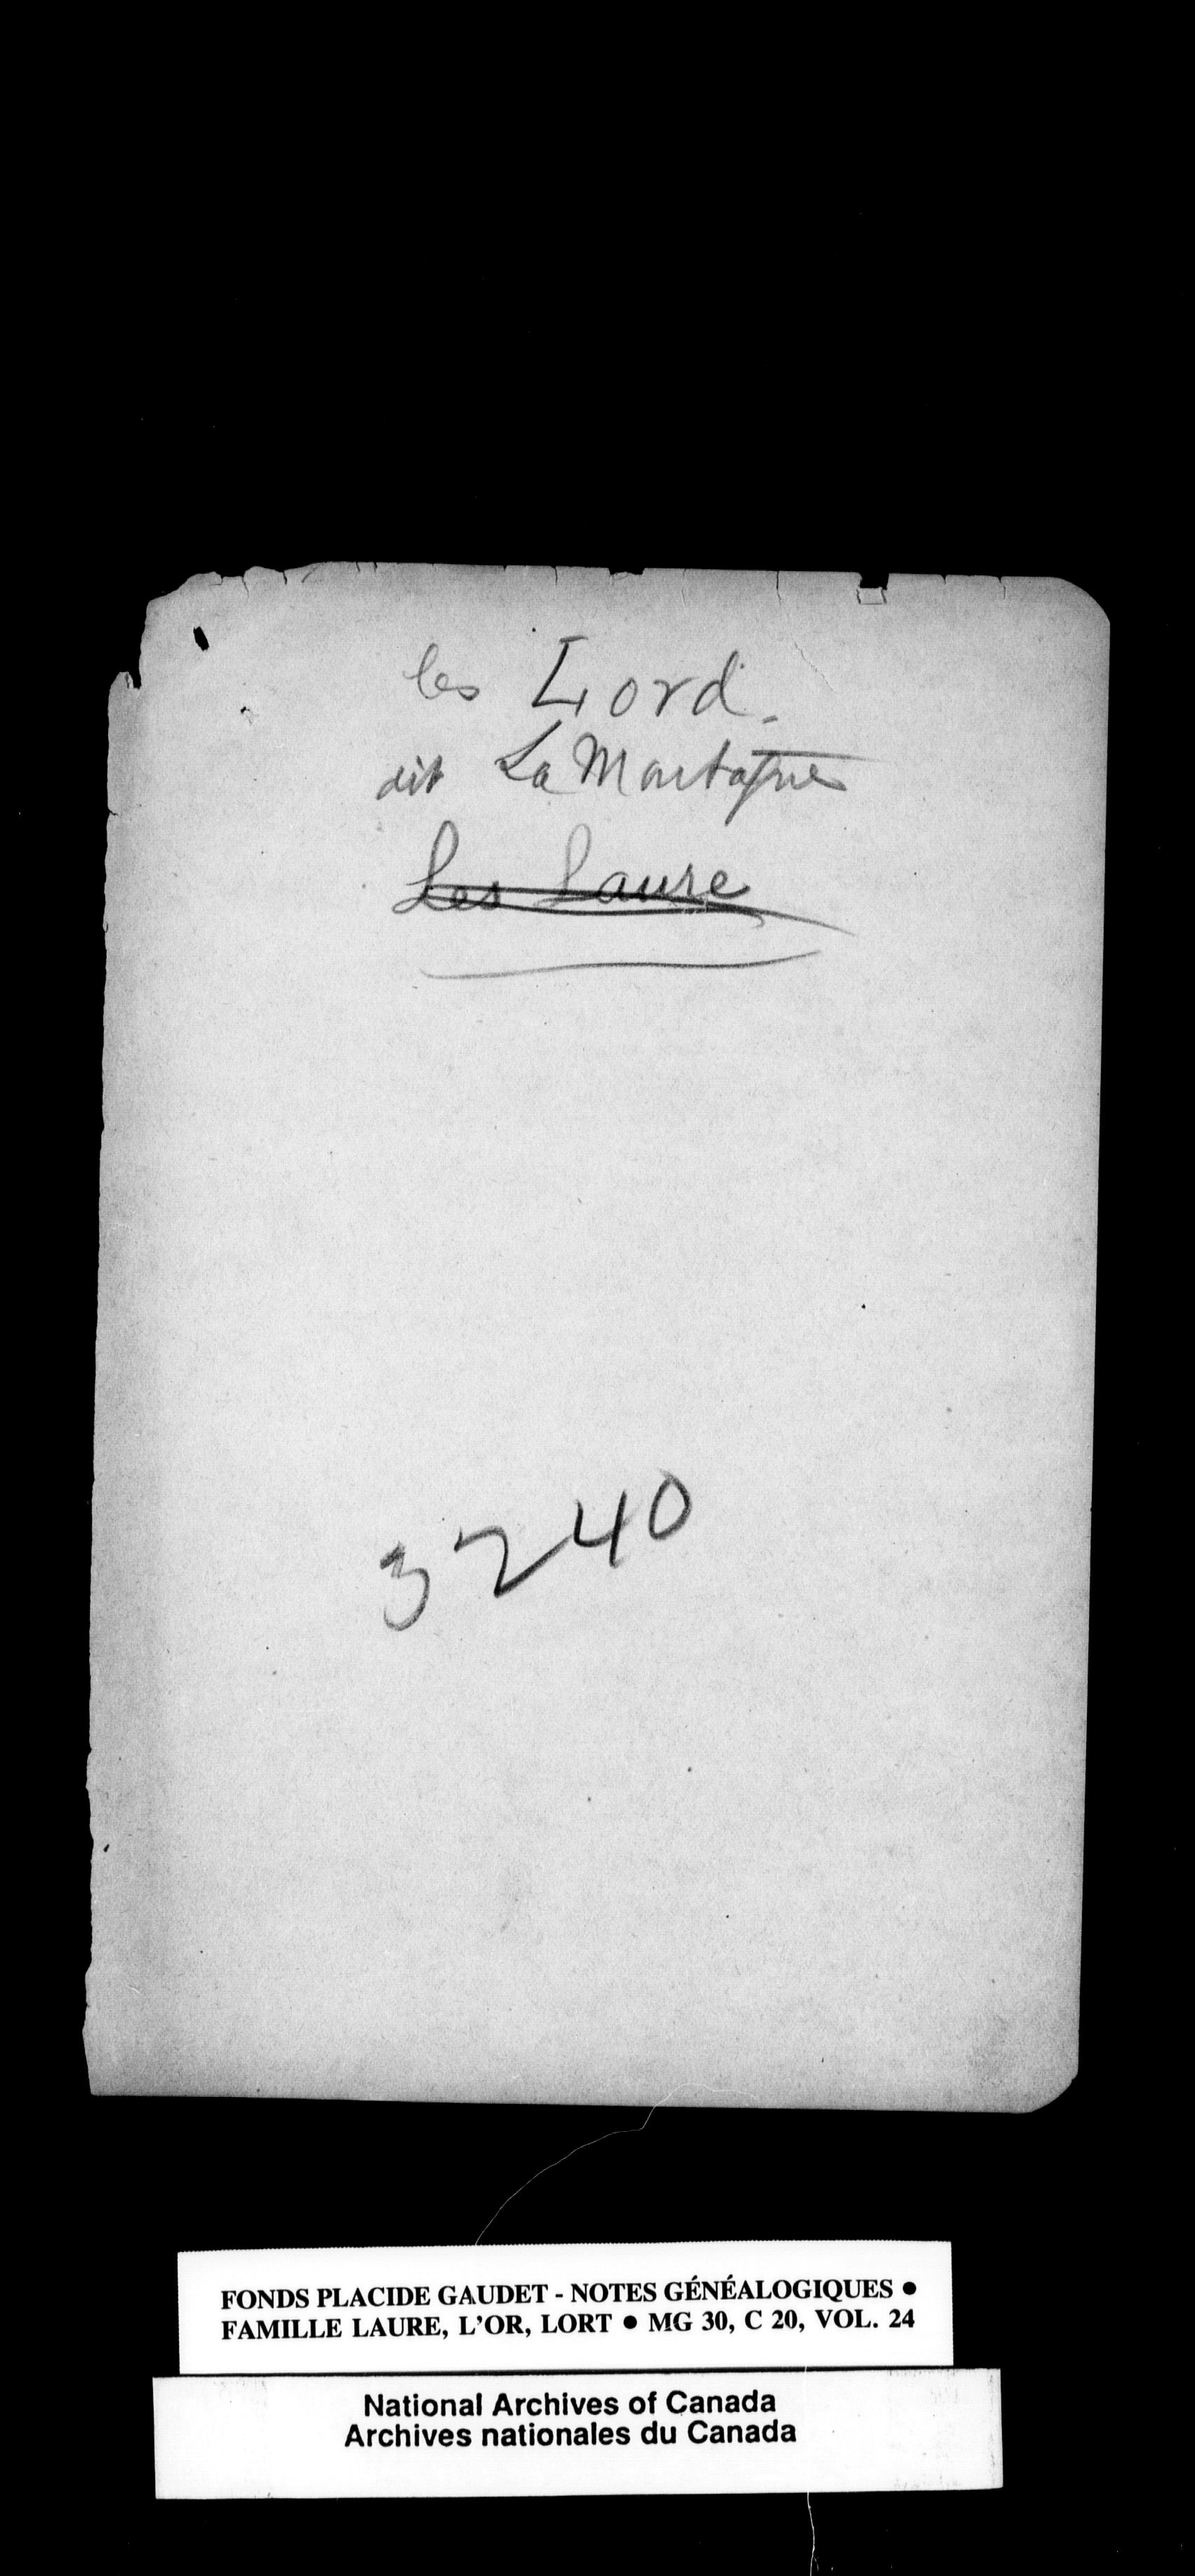 les Lord.
dit La Montagne
Les Laure
3240
FONDS PLACIDE GAUDET - NOTES GÉNÉALOGIQUES ●
FAMILLE LAURE, L'OR, LORT ● MG 30, C 20, VOL. 24
National Archives of Canada
Archives nationales du Canada